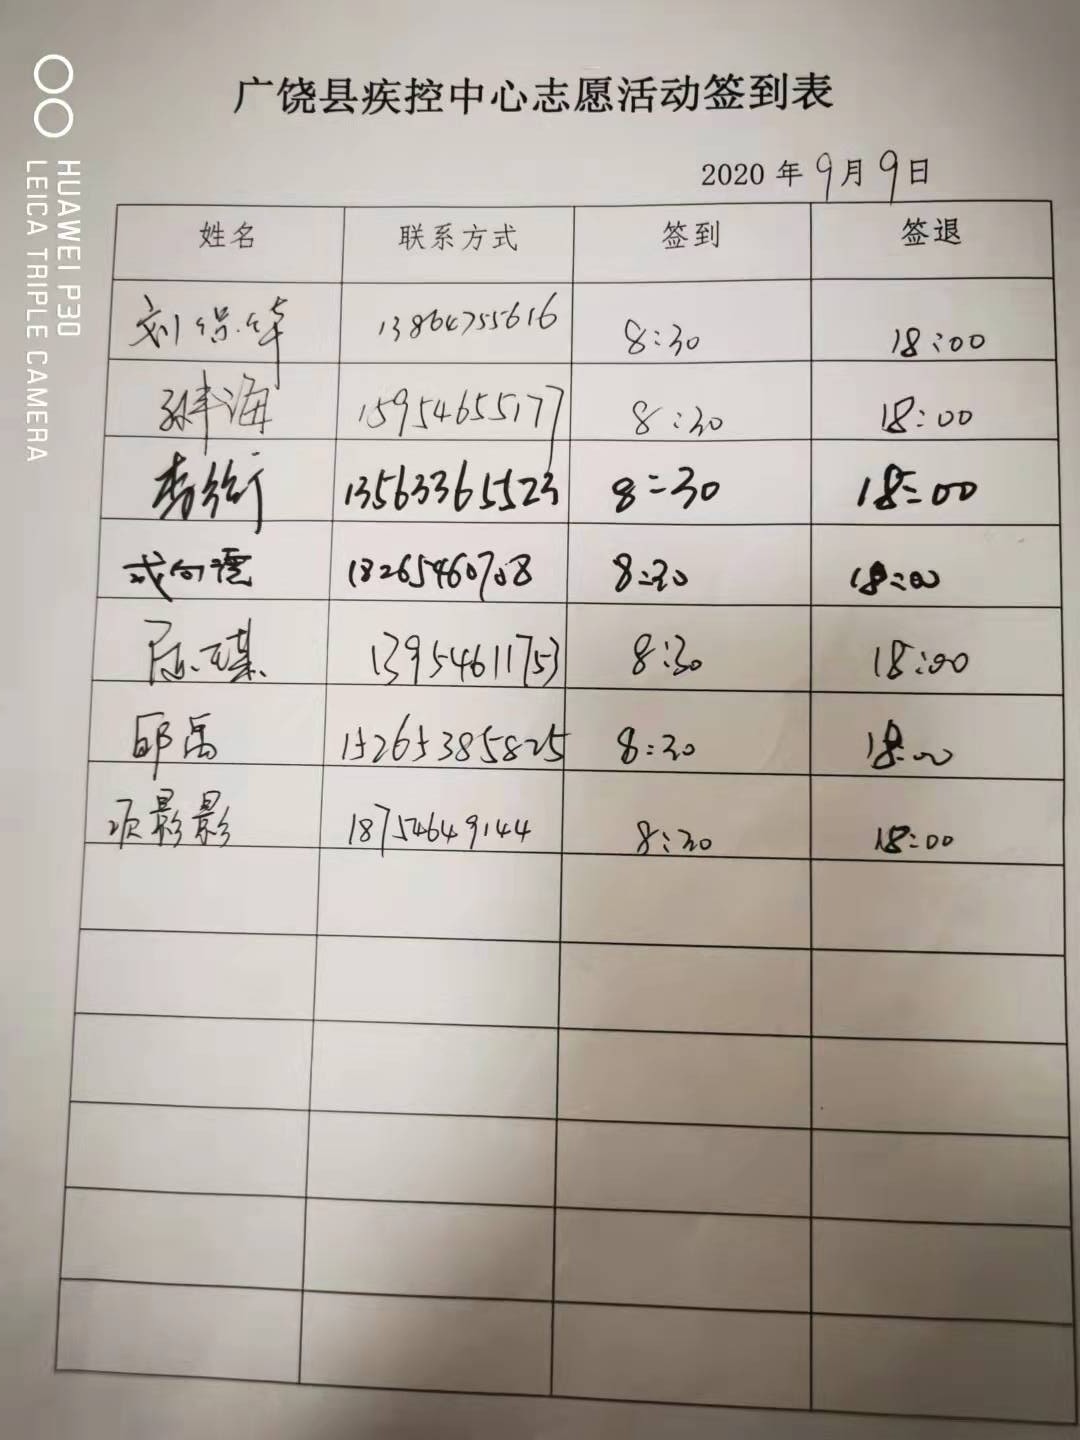 广饶县疾控中心志愿活动签到表
2020 年 9 月 9 日
姓名 联系方式 签到 签退
刘保华 13864755616 8:30 18:00
海 15954655177 8:30 18:00
李衍 13563365523 8:30 18:00
成向德 18265460708 8:30 18:00
陈璂 13954611753 8:30 18:00
邱禹 15265385825 8:30 18:00
项影影 18754649144 8:30 18:00
HUAWEI P30
LEICA TRIPLE CAMERA